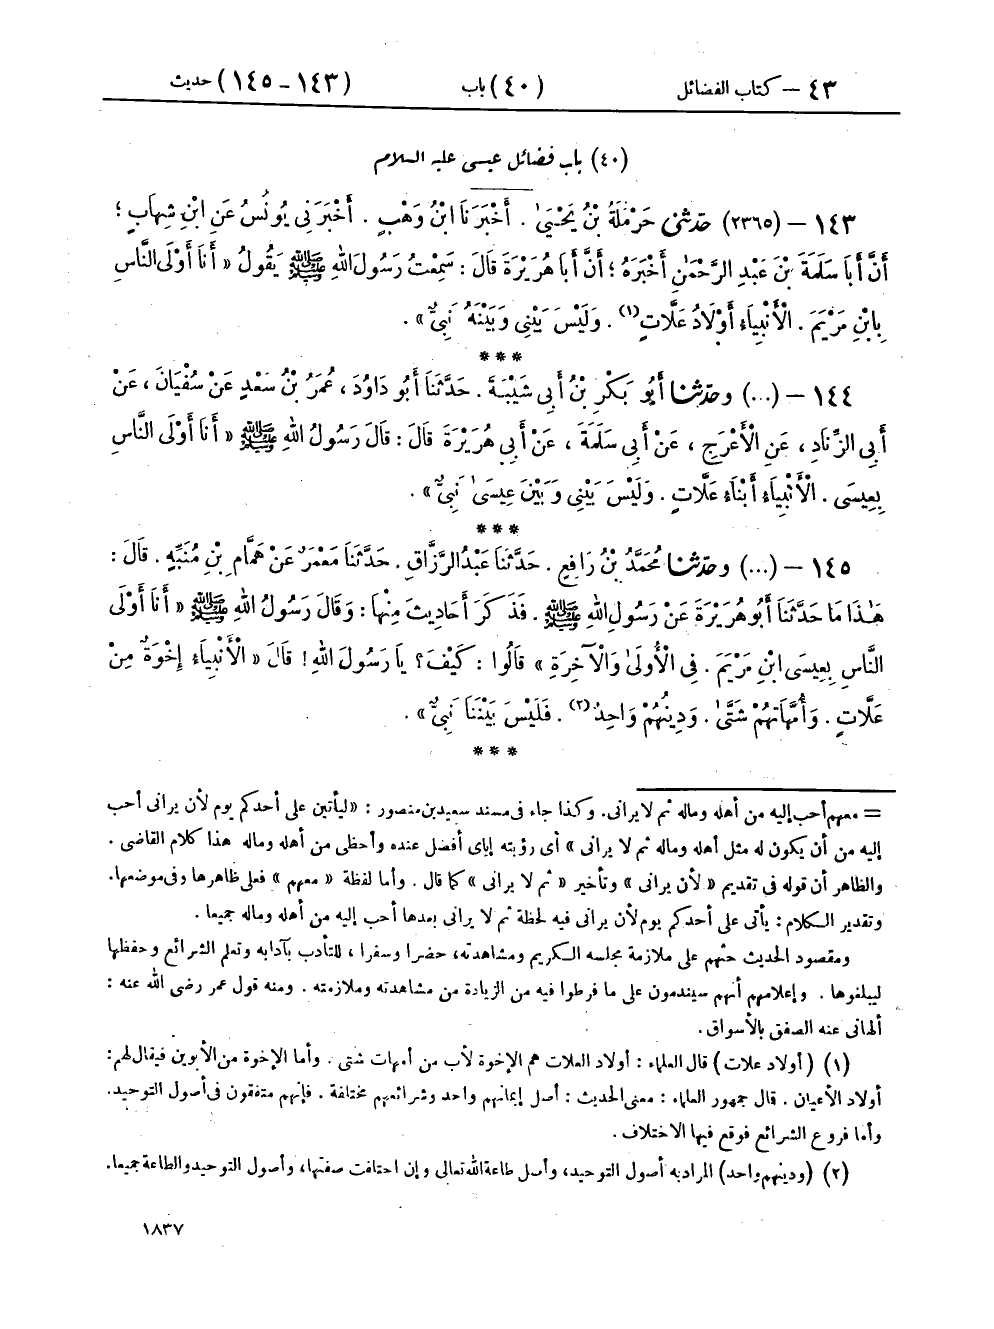 ٤٣ – كتاب الفضائل (٤٠) باب (١٤٣ – ١٤٥) حديث
(٤٠) باب فضائل عيسى عليه السلام
١٤٣ – (٢٣٦٥) حدثنى حَرْمَلَةُ بْنُ يَحْيَىٰ . أَخْبَرَنَا ابْنُ وَهْبٍ . أَخْبَرَنِى يُونُسُ عَنِ ابْنِ شِهَابٍ ؛
أَنَّ أَبَا سَلَمَةَ بْنَ عَبْدِ الرَّحْمَٰنِ أَخْبَرَهُ ؛ أَنَّ أَبَا هُرَيْرَةَ قَالَ : سَمِعْتُ رَسُولَ اللهِ ﷺ يَقُولُ « أَنَا أَوْلَى النَّاسِ
بِابْنِ مَرْيَمَ . الْأَنْبِيَاءُ أَوْلَادُ عَلَّاتٍ(١) . وَلَيْسَ بَيْنِى وَبَيْنَهُ نَبِىٌّ » .
***
١٤٤ – (...) وحدثنا أَبُو بَكْرِ بْنُ أَبِى شَيْبَةَ . حَدَّثَنَا أَبُو دَاوُدَ ، عُمَرُ بْنُ سَعْدٍ عَنْ سُفْيَانَ ، عَنْ
أَبِى الزِّنَادِ ، عَنِ الْأَعْرَجِ ، عَنْ أَبِى سَلَمَةَ ، عَنْ أَبِى هُرَيْرَةَ قَالَ : قَالَ رَسُولُ اللهِ ﷺ « أَنَا أَوْلَى النَّاسِ
بِعِيسَى . الْأَنْبِيَاءُ أَبْنَاءُ عَلَّاتٍ . وَلَيْسَ بَيْنِى وَبَيْنَ عِيسَىٰ نَبِىٌّ » .
***
١٤٥ – (...) وحدثنا مُحَمَّدُ بْنُ رَافِعٍ . حَدَّثَنَا عَبْدُ الرَّزَّاقِ . حَدَّثَنَا مَعْمَرٌ عَنْ هَمَّامِ بْنِ مُنَبِّهٍ . قَالَ :
هَٰذَا مَا حَدَّثَنَا أَبُو هُرَيْرَةَ عَنْ رَسُولِ اللهِ ﷺ . فَذَكَرَ أَحَادِيثَ مِنْهَا : وَقَالَ رَسُولُ اللهِ ﷺ « أَنَا أَوْلَى
النَّاسِ بِعِيسَى ابْنِ مَرْيَمَ . فِى الْأُولَىٰ وَالْآخِرَةِ » قَالُوا : كَيْفَ؟ يَا رَسُولَ اللهِ! قَالَ « الْأَنْبِيَاءُ إِخْوَةٌ مِنْ
عَلَّاتٍ . وَأُمَّهَاتُهُمْ شَتَّىٰ . وَدِينُهُمْ وَاحِدٌ(٢) . فَلَيْسَ بَيْنَنَا نَبِىٌّ » .
***
= معهم أحب إليه من أهله وماله ثم لا يرانى. وكذا جاء فى مسند سعيد بن منصور : « ليأتين على أحدكم يوم لأن يرانى أحب
إليه من أن يكون له مثل أهله وماله ثم لا يرانى » أى رؤيته إياى أفضل عنده وأحظى من أهله وماله هذا كلام القاضى .
والظاهر أن قوله فى تقديم « لأن يرانى » وتأخير « ثم لا يرانى » كما قال . وأما لفظة « معهم » فعلى ظاهرها وفى موضعها.
وتقدير الكلام : يأتى على أحدكم يوم لأن يرانى فيه لحظة ثم لا يرانى بعدها أحب إليه من أهله وماله جميعا .
ومقصود الحديث حثهم على ملازمة مجلسه الكريم ومشاهدته، حضرا وسفرا ، للتأدب بآدابه وتعلم الشرائع وحفظها
ليبلغوها . وإعلامهم أنهم سيندمون على ما فرطوا فيه من الزيادة من مشاهدته وملازمته . ومنه قول عمر رضى الله عنه :
ألهانى عنه الصفق بالأسواق.
(١) (أولاد علات) قال العلماء : أولاد العلات هم الإخوة لأب من أمهات شتى . وأما الإخوة من الأبوين فيقال لهم:
أولاد الأعيان . قال جمهور العلماء : معنى الحديث : أصل إيمانهم واحد وشرائعهم مختلفة . فإنهم متفقون فى أصول التوحيد.
وأما فروع الشرائع فوقع فيها الاختلاف .
(٢) (ودينهم واحد) المراد به أصول التوحيد، وأصل طاعة الله تعالى وإن اختلفت صفتها، وأصول التوحيد والطاعة جميعا.
١٨٣٧